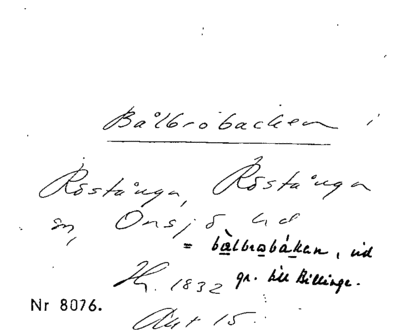 Bålbrobacken i
Röstånga, Röstånga
sn, Onsjö hd
= bàlbrobákan, vid
gr. till Billinge.
Hr. 1832
Akt 15.
Nr 8076.